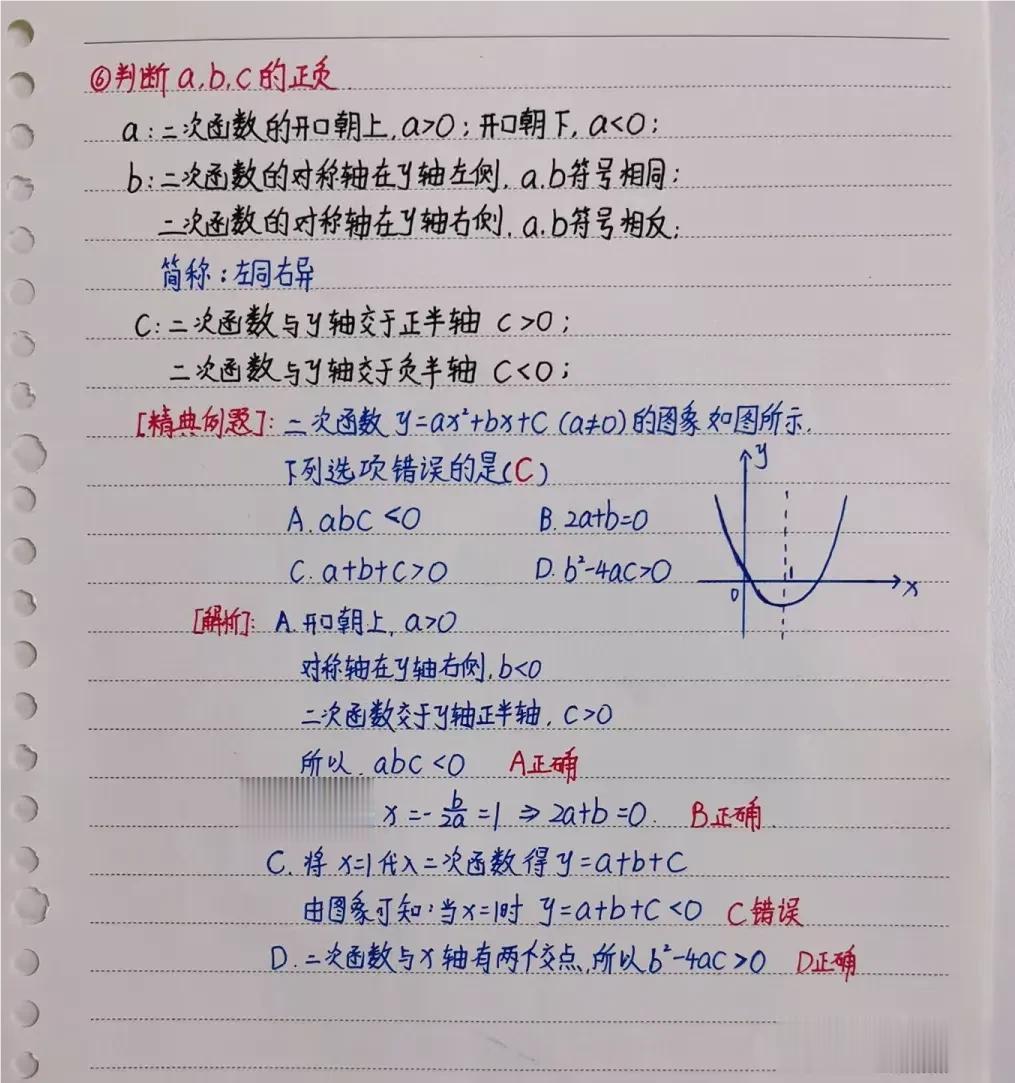 ⑥判断a,b,c的正负.
a:二次函数的开口朝上,a>0;开口朝下,a<0;
b:二次函数的对称轴在y轴左侧,a.b符号相同;
二次函数的对称轴在y轴右侧,a.b符号相反;
简称:左同右异
C:二次函数与y轴交于正半轴 c>0;
二次函数与y轴交于负半轴 C<0;
[精典例题]:二次函数y=ax²+bx+C(a≠0)的图象如图所示.
下列选项错误的是(C)
A.abc<0 B.2a+b=0
C.a+b+c>0 D.b²-4ac>0
y
1
0
x
[解析]:A.开口朝上,a>0
对称轴在y轴右侧,b<0
二次函数交于y轴正半轴,c>0
所以.abc<0 A正确
x=-b/2a=1⇒2a+b=0. B正确.
C.将x=1代入二次函数得y=a+b+C
由图象可知:当x=1时 y=a+b+C<0 C错误
D.二次函数与x轴有两个交点,所以b²-4ac>0 D正确